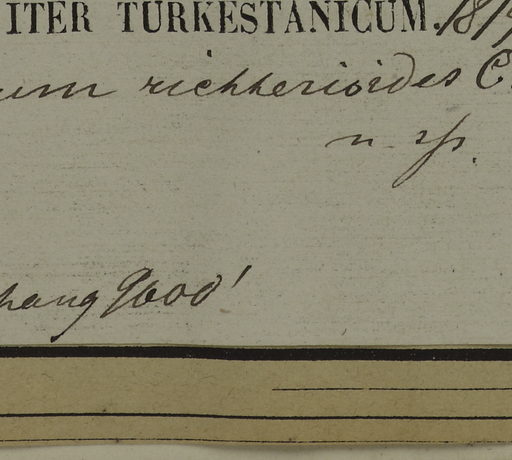 ITER TURKESTANICUM. 187
um richterioides C.
n. sp.
hang 9000'